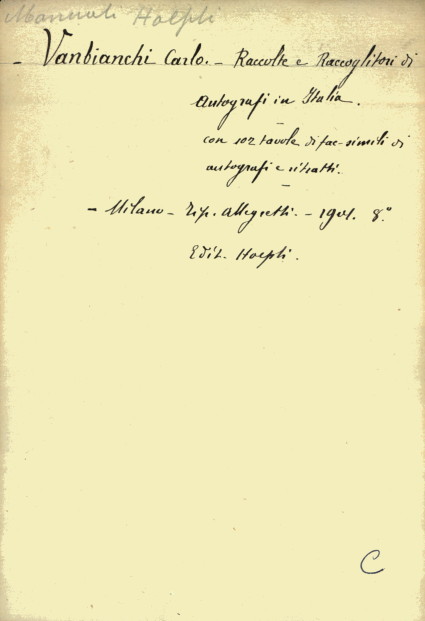 Manuali Hoepli
- Vanbianchi Carlo. - Raccolte e Raccoglitori di
Autografi in Italia.
con 102 tavole di fac-simili di
autografi e ritratti.
- Milano - Tip. Allegretti. - 1901. 8.°
Edit. Hoepli.
C